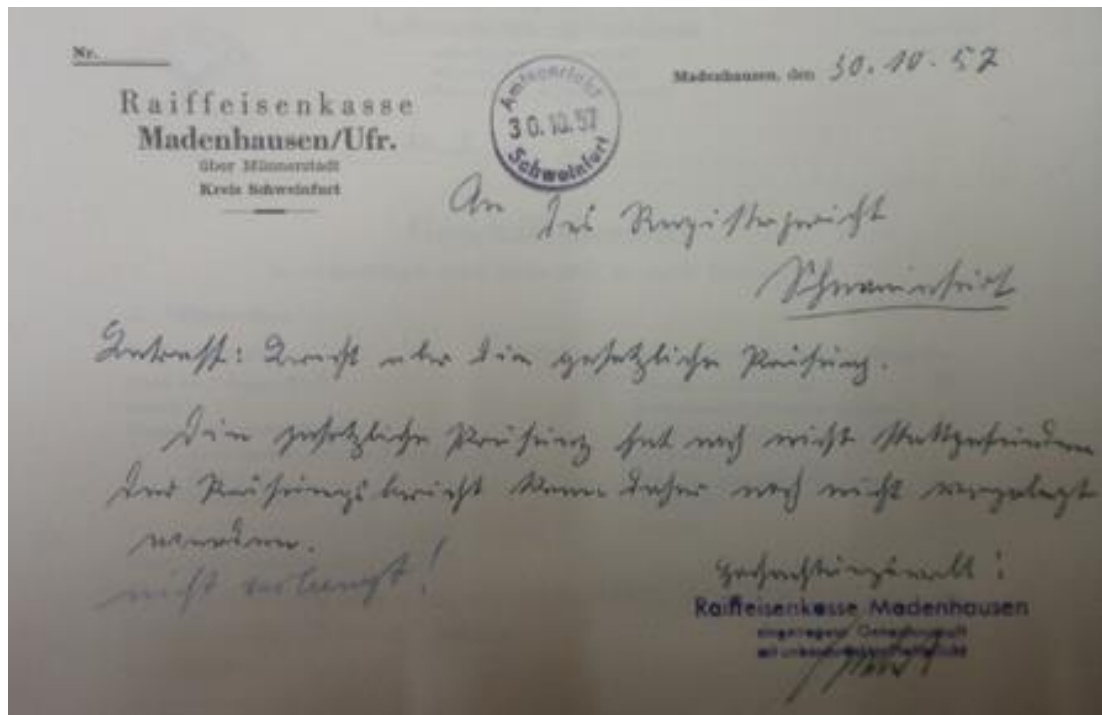 Nr.
Madenhausen, den 30. 10. 57
Raiffeisenkasse
Madenhausen/Ufr.
über Münnerstadt
Kreis Schweinfurt
Amtsgericht
30.10.57
Schweinfurt
An das Registergericht
Schweinfurt
Betreff: Bericht über die gesetzliche Prüfung.
Die gesetzliche Prüfung hat noch nicht stattgefunden
Der Prüfungsbericht kann daher noch nicht vorgelegt
werden.
nicht verlangt!
Hochachtungsvoll!
Raiffeisenkasse Madenhausen
eingetragene Genossenschaft
mit unbeschränkter Haftpflicht